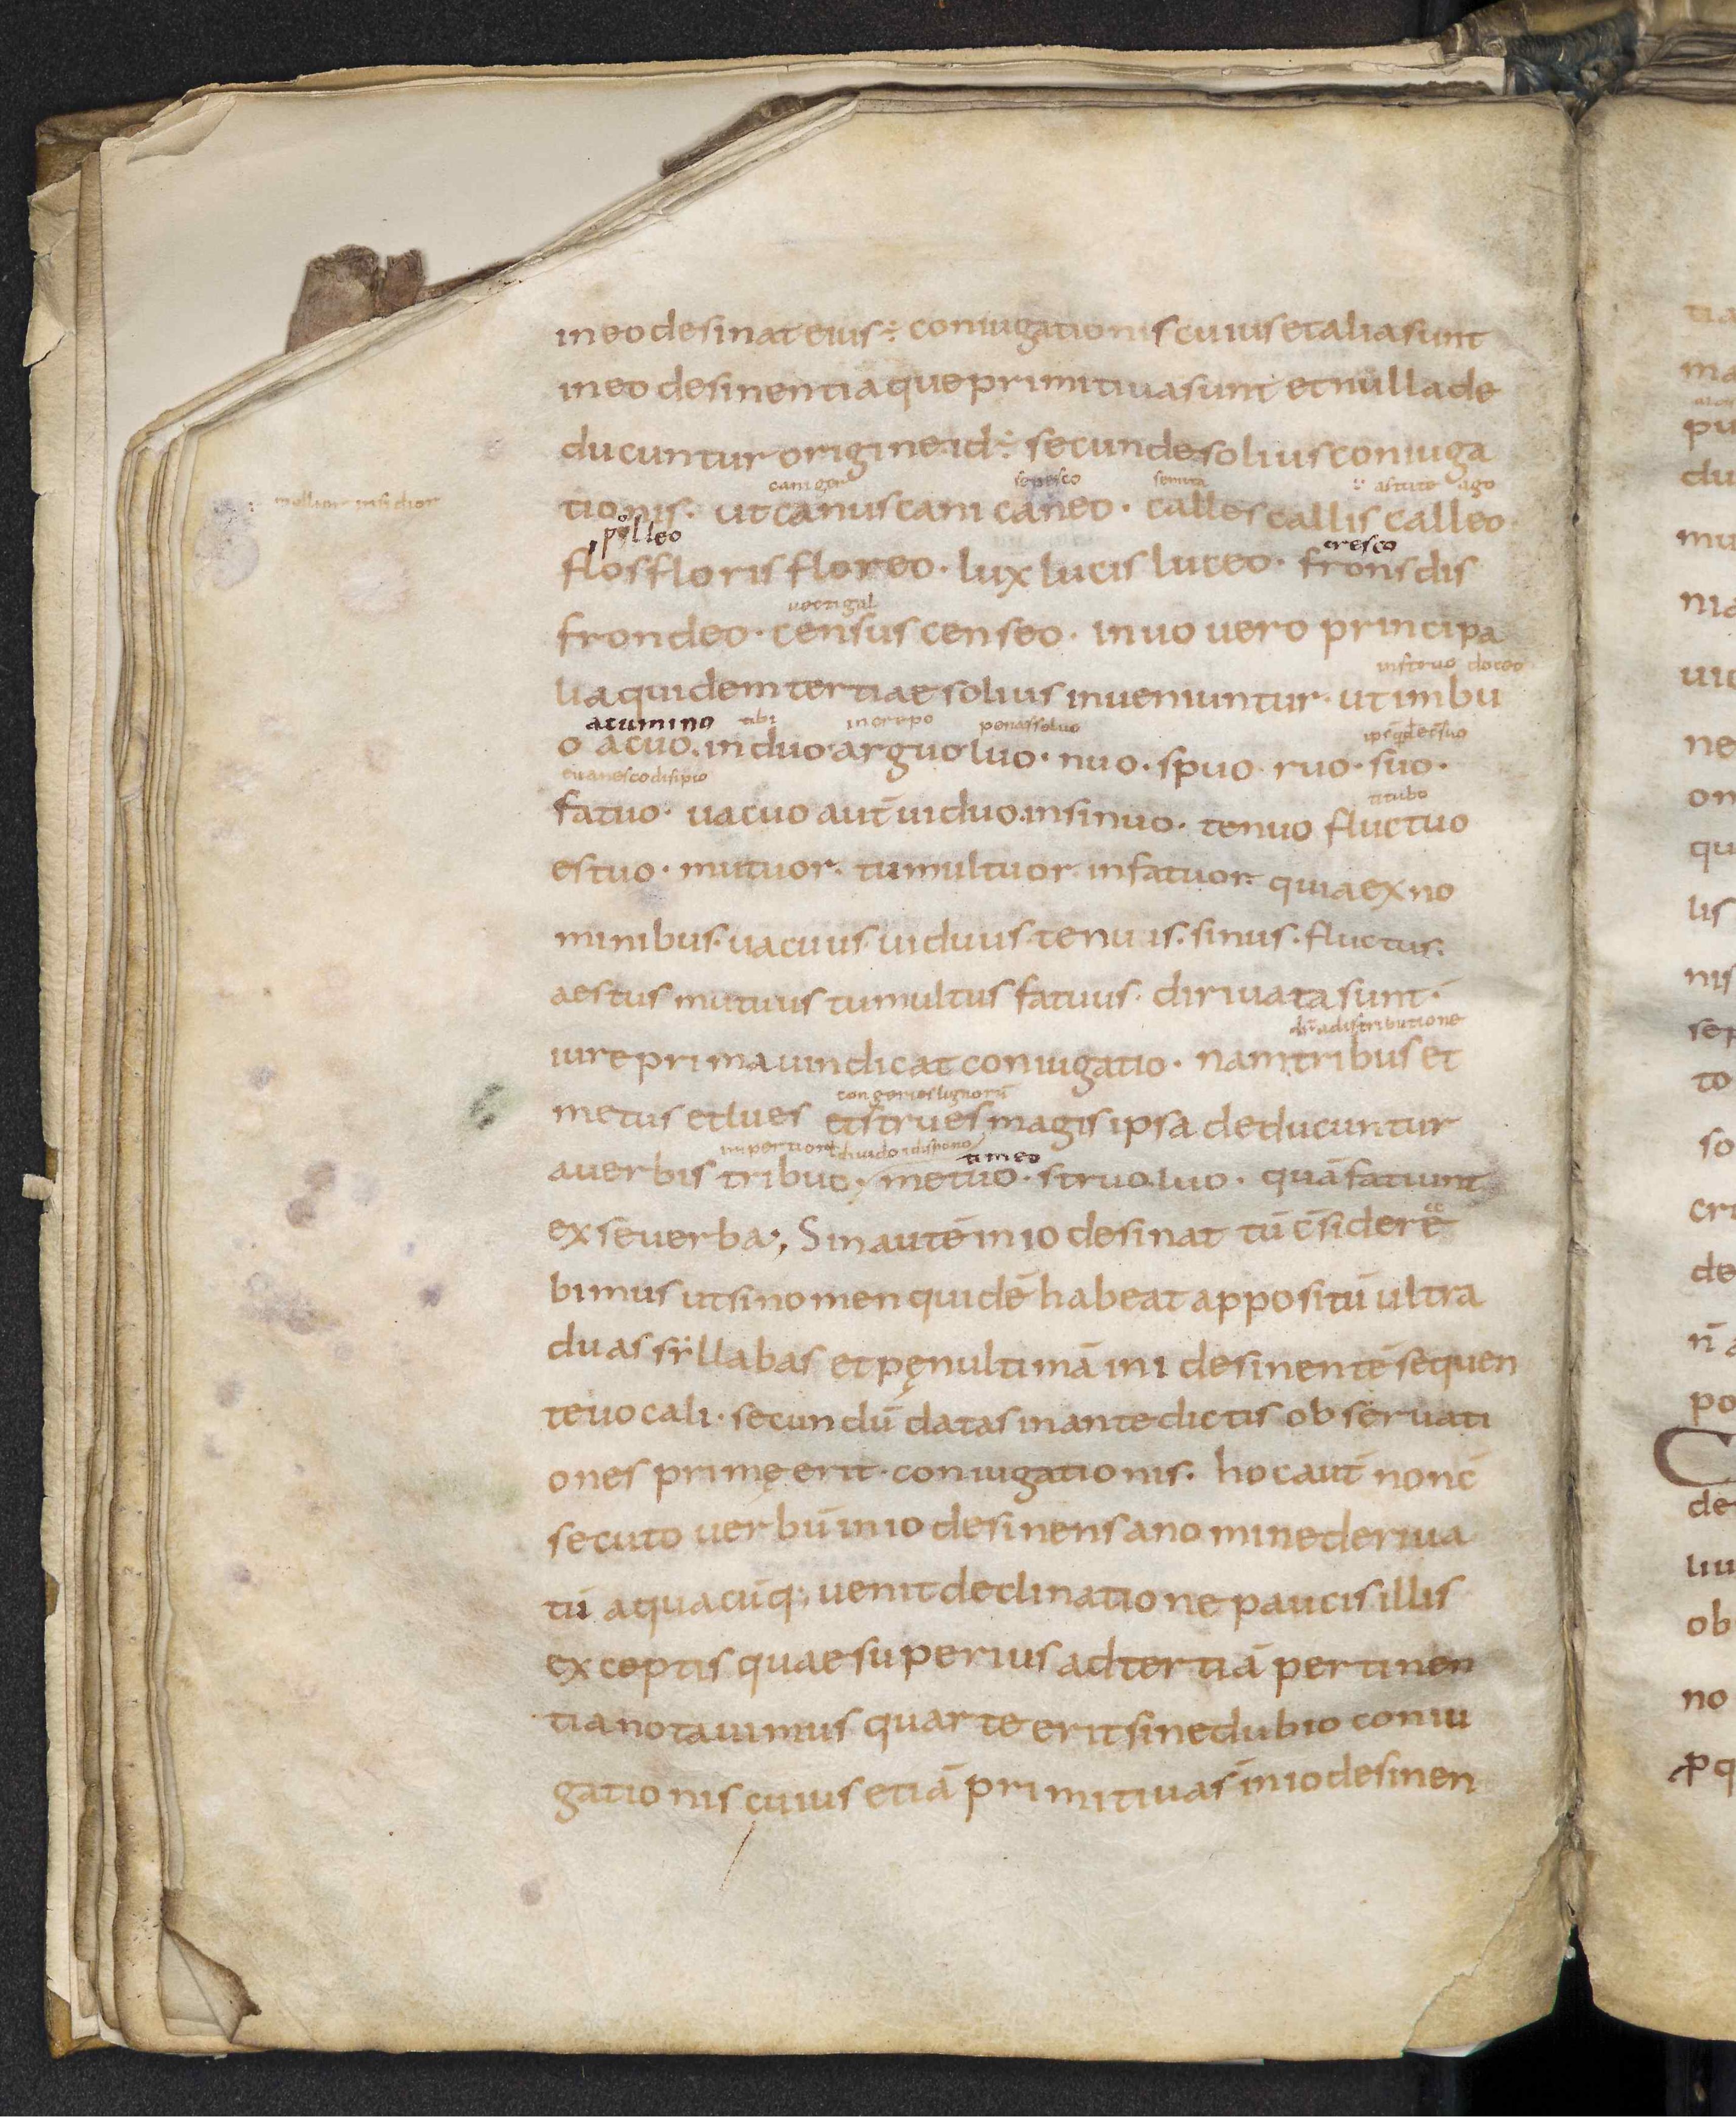 in eo desinat eius ÷ coniugationis cuius et alia sunt
in eo desinentia que primitiua sunt et nulla de
ducuntur origine id ÷ secunde solius coniuga
caniger senesco semita astute ago
tionis · ut canus cani caneo · calles callis calleo
polleo cresco
flos floris floreo · lux lucis luceo · frons dis
uectigal
frondeo · census censeo · in uo uero principa
instruo doceo
lia quidem tertiae solius inueniuntur · ut imbu
acumino tibi increpo penas soluo
o acuo · induo arguo luo · nuo · spuo · ruo · suo ·
euanesco disipio titubo
fatuo · uacuo aut̄ uiduo · insinuo · tenuo fluctuo
estuo · mutuor · tumultuor infatuor · quia ex no
minibus · uacuus uiduus tenuis · sinus · fluctus ·
aestus mutuus tumultus fatuus · diriuata sunt ·
a distributione
iure prima uindicat coniugatio · nam tribus et
congeries lignorū
metus et lues et strues magis ipsa deducuntur
diuido dispono timeo
a uerbis tribuo · metuo · struo luo · quā fatiunt
ex se uerba ; Sin autē in io desinat tū c̄sidere
bimus ut si nomen quidē habeat appositū ultra
duas syllabas et pęnultimā in i desinentē sequen
te uocali · secundū datas in antedictis obseruati
ones primę erit · coniugationis · hoc aut̄ non c̄
secuto uerbū in io desinens a nomine deriua
tū a quacūq; uenit declinatione paucis illis
exceptis quae superius ad tertiā pertinen
tia notauimus quarte erit sine dubio coniu
gationis cuius etiā primitiuas in io desinen